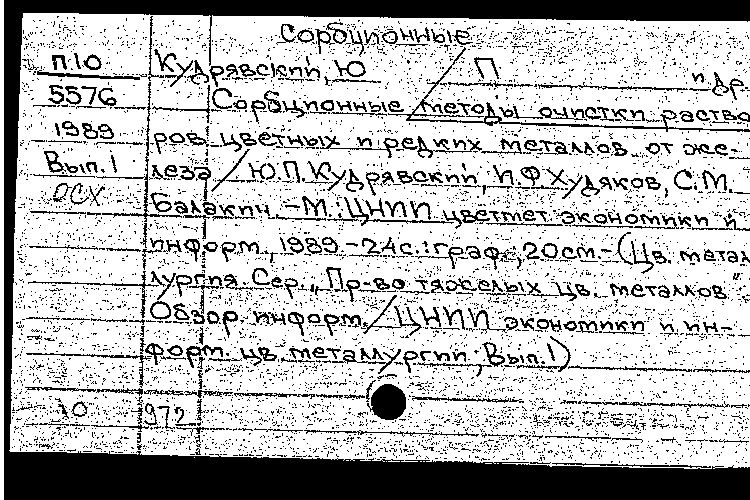 Сорбционные
П10 Кудрявский, Ю П и др.
5576 Сорбционные методы очистки раство
1989 ров цветных и редких металлов от же-
Вып.1 леза / Ю.П.Кудрявский, И.Ф Худяков, С.М.
ОСХ Балакин. - М.: ЦНИИ цветмет экономики и
информ., 1989. - 24с.: граф.; 20см. - (Цв. метал
лургия. Сер. „Пр-во тяжелых цв. металлов":
Обзор. информ. / ЦНИИ экономики и ин-
форм. цв. металлургии; Вып.1)
10 972